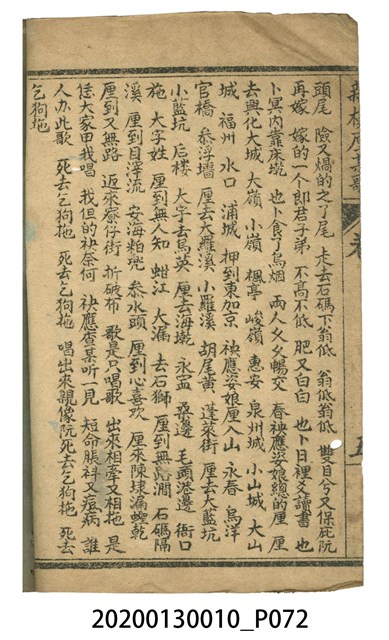 頭尾　險又燏的之了尾　走去石碼下翁低　翁低翁低　雙目兮又保庇阮
再嫁　嫁的一个即君子弟　不高不低　肥又白白　也卜日裡爻讀書　也
卜冥內靠床墘　也卜食了烏烟　兩人爻爻暢交　春袂應娑娘總的厘　厘
去興化大城　大嶺　小嶺　楓亭　峻嶺　惠安　泉州城　小山城　大山
城　福州　水口　浦城　押到東加京　袂應娑娘厘入山　永春　烏洋
官橋　叅浮墻　厘去大羅溪　小羅溪　胡尾黃　蓬萊街　厘去大藍坑
小藍坑　后樓　大宇去烏英　厘去海墘　永盃　桑邊　毛頭洪邊　衙口
施　大字姓　厘到無人知　蚶江　大漏　去石獅　厘到無蹺澗　石碼隔
溪　厘到目滓流　安海粕兜　叅水頭　厘到心喜欢　厘來陳埭漏蟶乾
厘到又無路　返來寮仔街　折破布　歌是只唱歌　出來相牽又相拖　是
恁大家田我唱　我但的袂奈何　袂應查某听一見　短命脹科爻痘病　誰
人办此歌　死去乞狗拖　死去乞狗拖　唱出來親像阮死去乞狗拖　死去
乞狗拖
20200130010_P072